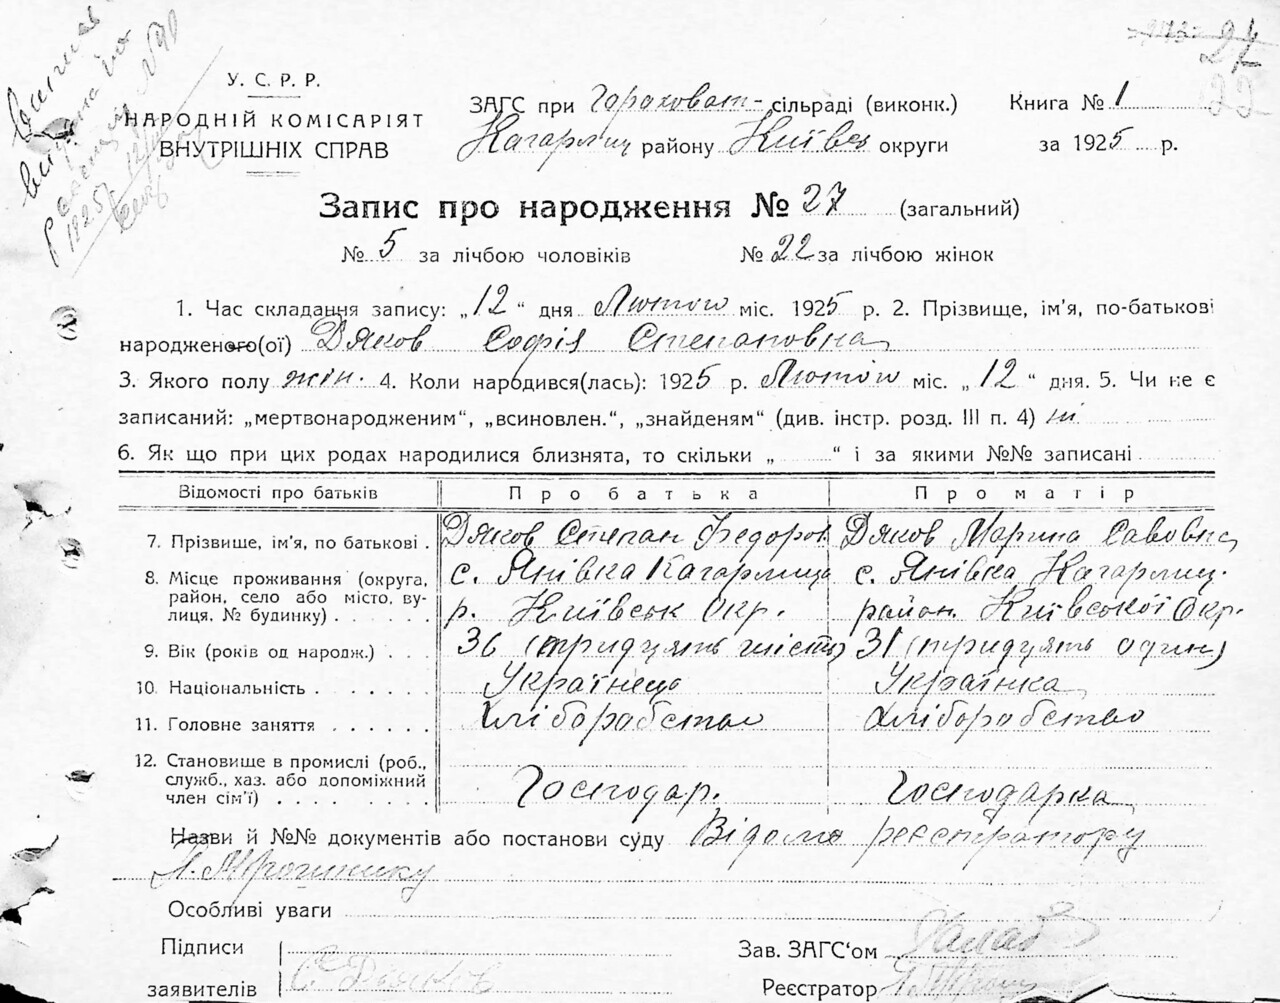 У. С. Р. Р.
НАРОДНІЙ КОМІСАРІЯТ
ВНУТРІШНІХ СПРАВ
ЗАГС при Гороховат- сільраді (виконк.)
Кагарлиц району Київськ округи
Книга № 1
за 1925 р.
27
22
Запис про народження № 27 (загальний)
№ 5 за лічбою чоловіків № 22 за лічбою жінок
1. Час складання запису: „12“ дня Лютого міс. 1925 р. 2. Прізвище, ім'я, по-батькові
народженого(ої) Дяков Софія Степановна
3. Якого полу жін. 4. Коли народився(лась): 1925 р. Лютого міс. „12“ дня. 5. Чи не є
записаний: „мертвонародженим“, „всиновлен.“, „знайденям“ (див. інстр. розд. III п. 4) ні
6. Як що при цих родах народилися близнята, то скільки „ “ і за якими №№ записані
Відомості про батьків Про батька Про матір
7. Прізвище, ім'я, по батькові . Дяков Степан Федоров Дяков Марина Савовна
8. Місце проживання (округа, район, село або місто, вулиця, № будинку) . с. Янівка Кагарлицк р. Київськ Окр. с. Янівка Кагарлиц. район. Київської Окр.
9. Вік (років од народж.) . . . 36 (тридцять шість) 31 (тридцять один)
10. Національність . . . . . . Українець Українка
11. Головне заняття . . . . . . Хліборобство Хліборобство
12. Становище в промислі (роб., служб., хаз. або допоміжний член сім'ї) . . . . . . . . Господар. Господарка
Назви й №№ документів або постанови суду Відомо реєстратору
Особливі уваги
Підписи
заявителів С Дяков
Зав. ЗАГС'ом
Реєстратор